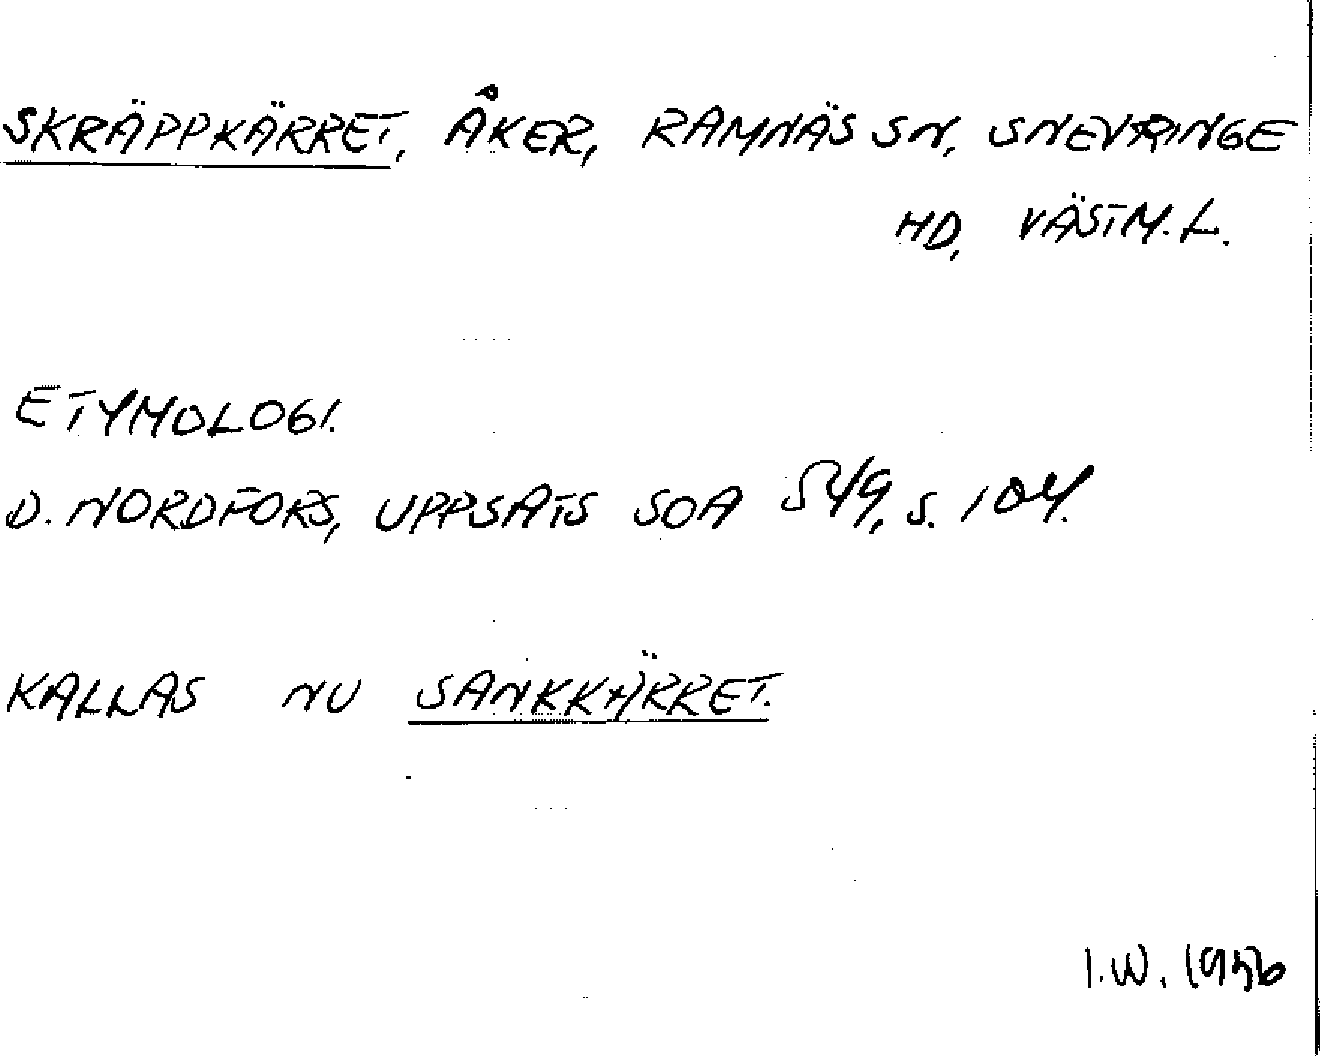 SKRÄPPKÄRRET, ÅKER, RAMNÄS SN, SNEVRINGE
HD, VÄSTM.L.
ETYMOLOGI.
D. NORDFORS, UPPSATS SOA 549, S. 104.
KALLAS NU SANKKÄRRET.
I.W. 1956